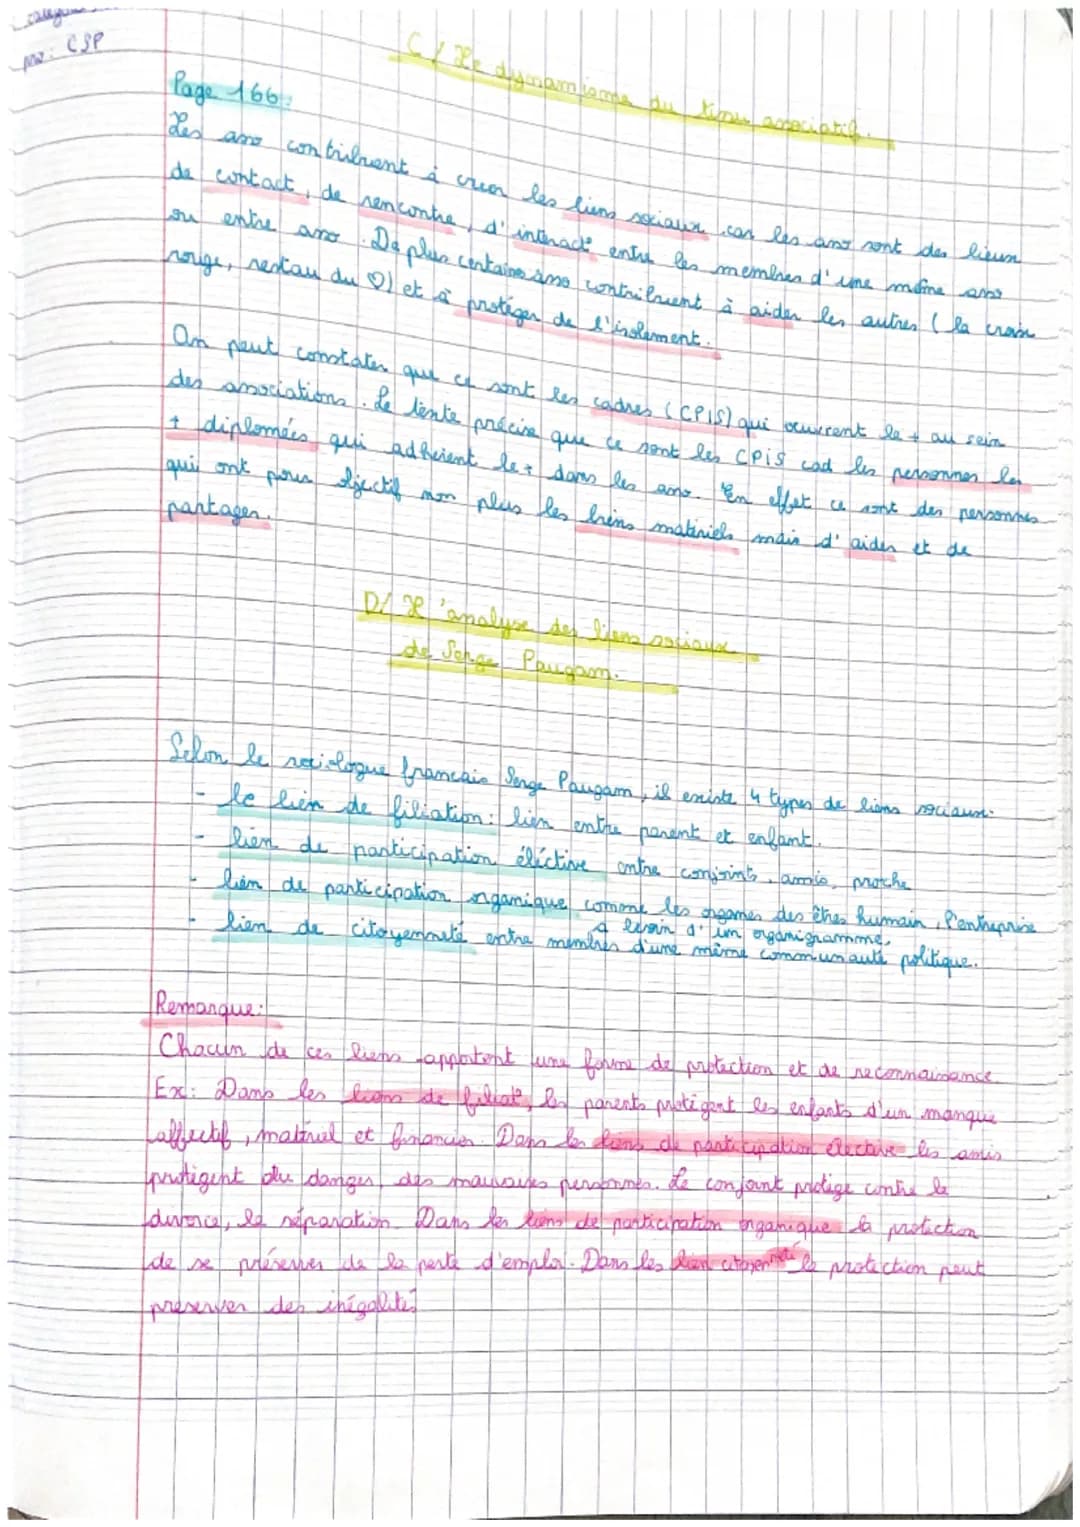 pro : CSP
C / Le dynamisme du tissu associatif.
Page 166 :
Les asso contribuent à créer les liens sociaux car les asso sont des lieux
de contact, de rencontre, d'interact° entre les membres d'une même asso
ou entre asso. De plus certaine asso contribuent à aider les autres (la croix
rouge, restau du ♡) et à protéger de l'isolement.
On peut constater que ce sont les cadres (CPIS) qui oeuvrent le + au sein
des associations. Le texte précise que ce sont les CPiS cad les personnes les
+ diplomées qui adhèrent le + dans les asso. En effet ce sont des personnes
qui ont pour objectif non plus les biens matériels mais d'aider et de
partager.
D/ L'analyse des liens sociaux
de Serge Paugam.
Selon le sociologue francais Serge Paugam, il existe 4 types de liens sociaux:
- le lien de filiation: lien entre parent et enfant.
- lien de participation éléctive entre conjoints, amis, proche
- lien de participation organique comme les organes des êtres humain, l'entreprise
a besoin d'un organigramme.
- lien de citoyenneté entre membres d'une même communauté politique.
Remarque:
Chacun de ces liens apportent une forme de protection et de reconnaissance.
Ex: Dans les liens de filiat°, les parents protègent les enfants d'un manque
affectif, matériel et financier. Dans les liens de participation élective les amis
protègent du danger, des mauvaises personnes. Le conjoint protège contre le
divorce, la séparation. Dans les liens de participation organique la protection
de se préserver de la perte d'emploi. Dans les lien citoyenneté la protection peut
préserver des inégalités